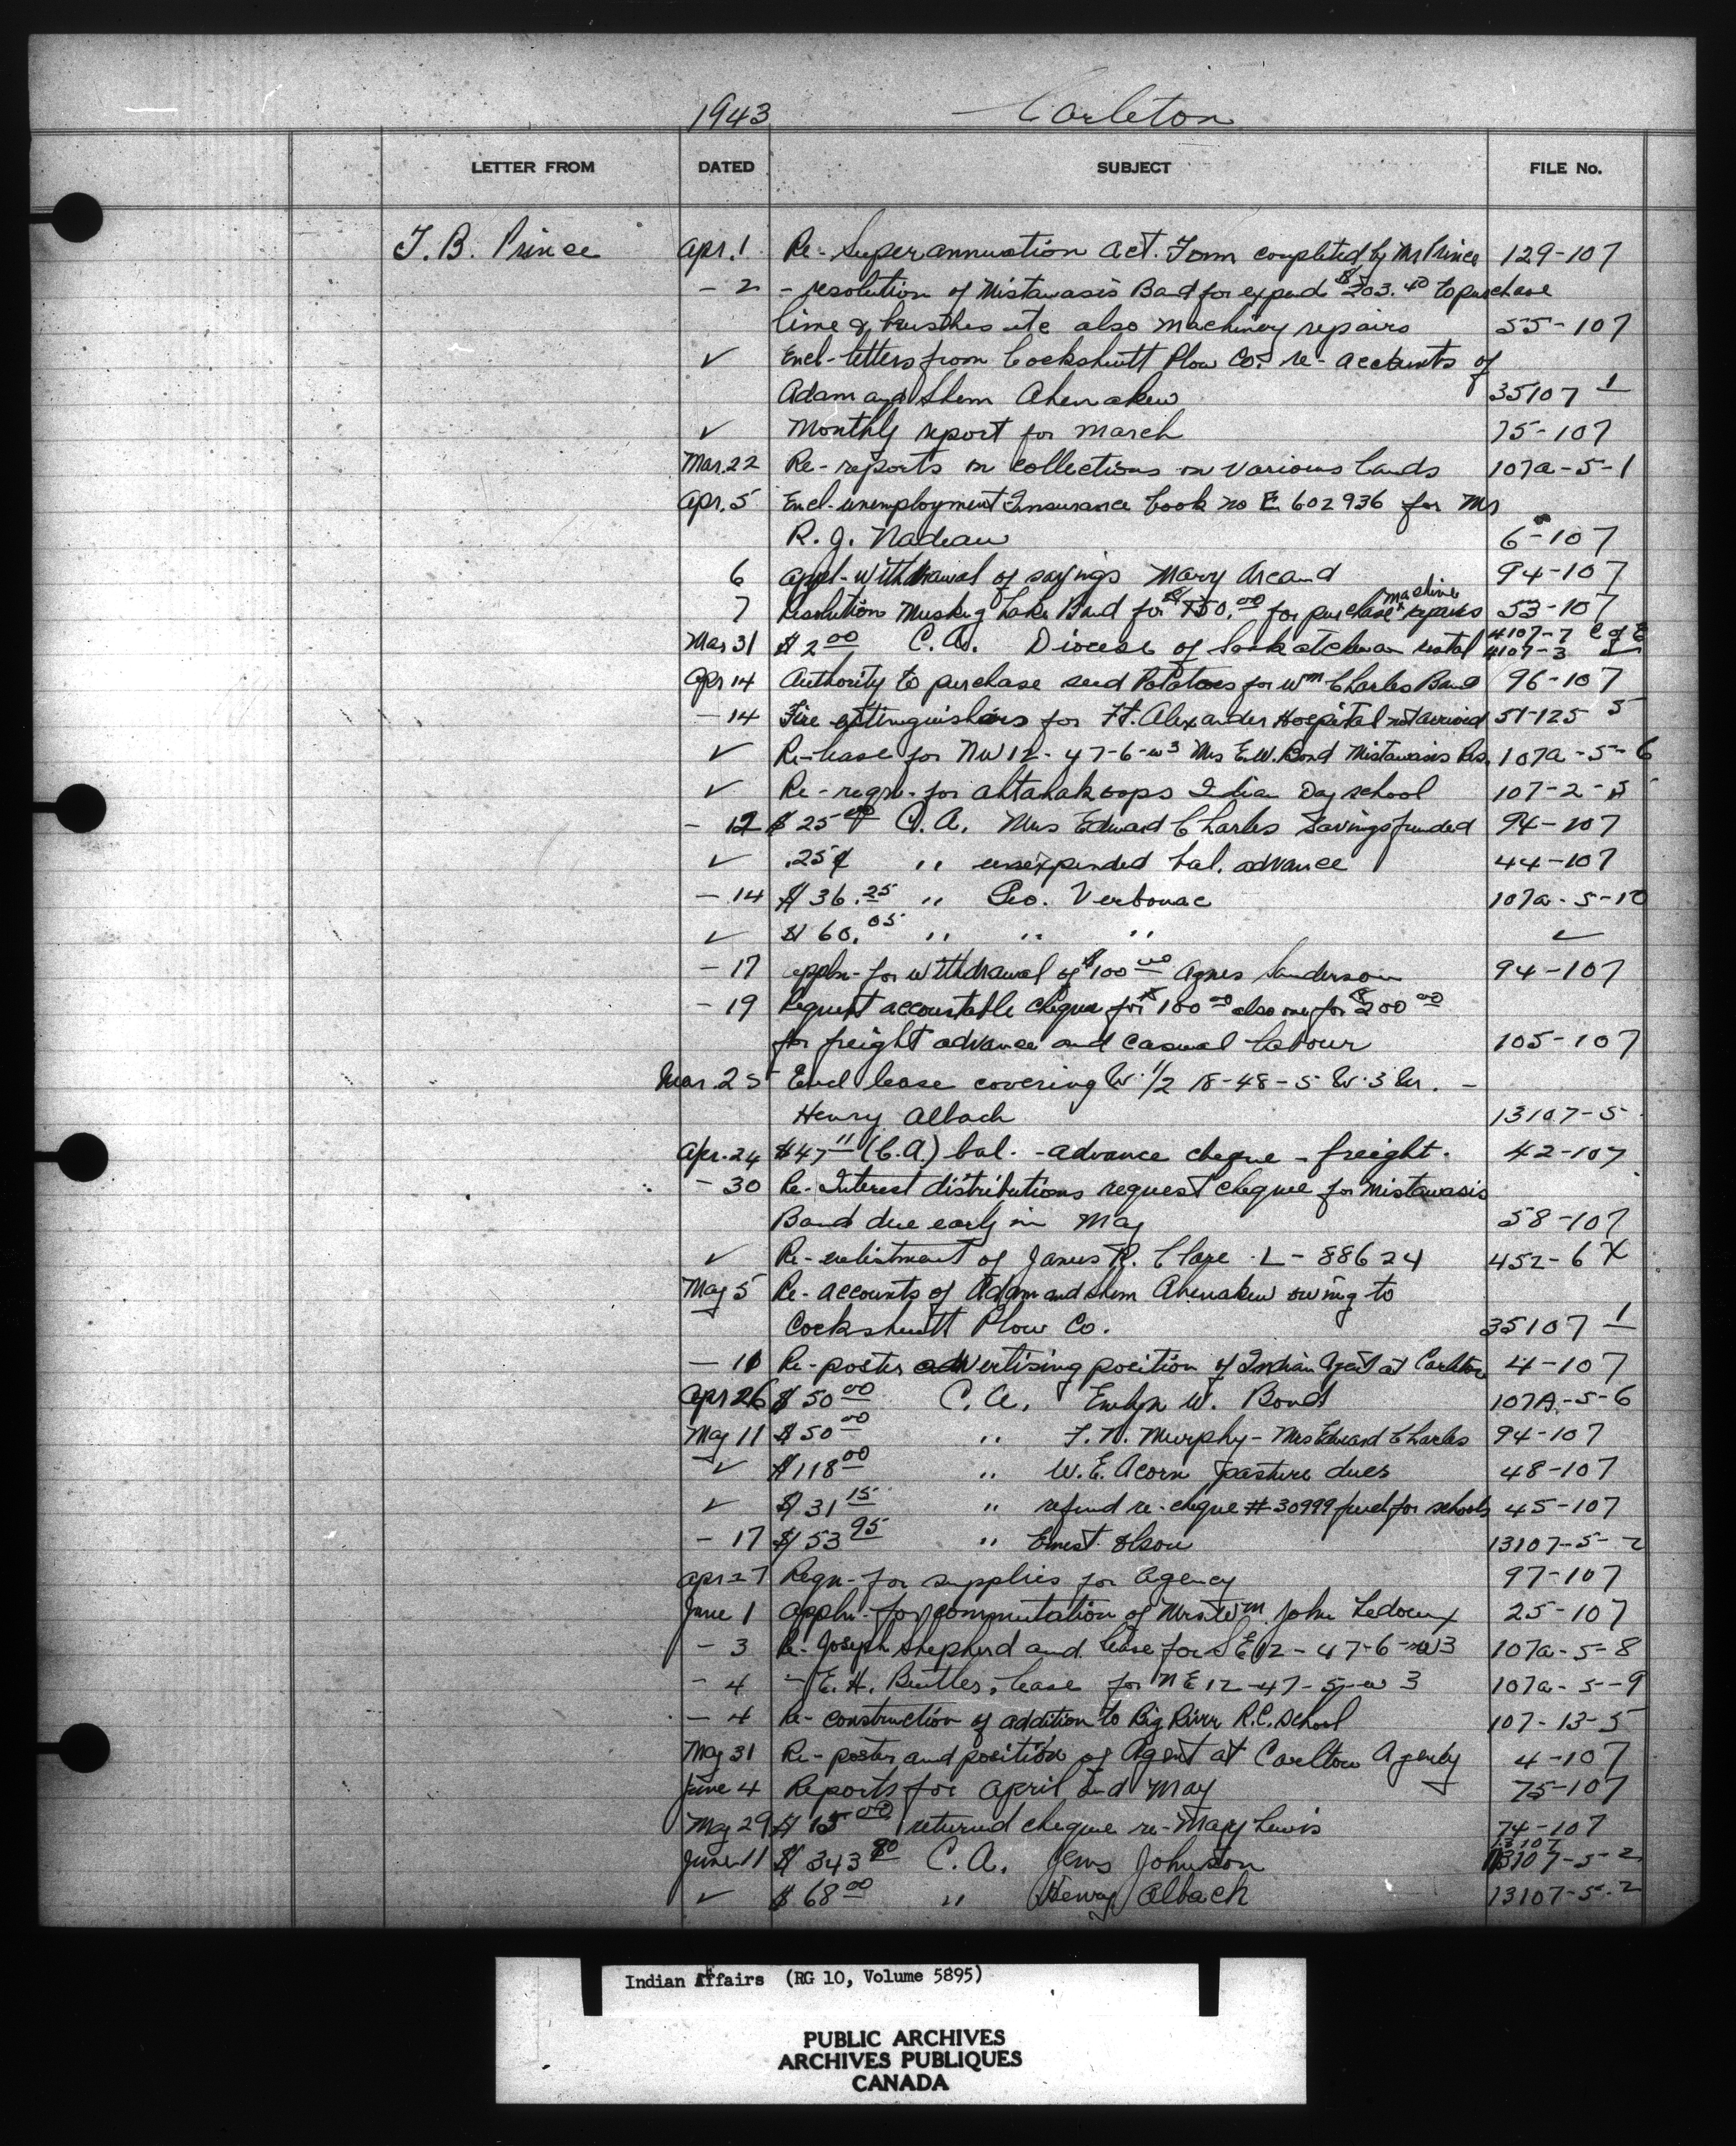 1943 Carleton
LETTER FROM DATED SUBJECT FILE No.
T. B. Prince Apr. 1 Re- Superannuation Act. Form completed by Mr Prince 129-107
- 2 - resolution of Mistawasis Band for expend $203.40 to purchase
lime & brushes etc also machinery repairs 55-107
✓ Encl- letters from Cockshutt Plow Co. re- accounts of
Adam and Shem Ahenakew 35107 1
✓ Monthly report for March 75-107
Mar. 22 Re- reports on collections on various lands 107a-5-1
Apr. 5 Encl- unemployment Insurance book no E 602936 for Mr
R. J. Nadeau 6-107
6 Appl- withdrawal of savings Mary Arcand 94-107
7 Resolution Muskeg Lake Band for $150.00 for purchase machine repairs 53-107
Mar 31 $2.00 C.A. Diocese of Saskatchewan rental 4107-7 C of E
4107-3 "
Apr 14 Authority to purchase seed Potatoes for Wm Charles Band 96-107
- 14 Fire extinguishers for Ft. Alexander Hospital not arrived 51-125 5
✓ Re- lease for NW 12-47-6-w3 Mrs E.W. Bond Mistawasis Res. 107a-5-6
✓ Re- reqn- for Ahtahakoops Indian Day school 107-2-5
- 12 $25.00 C.A. Mrs Edward Charles Savings funded 94-107
✓ .25¢ " unexpended bal. advance 44-107
- 14 $36.25 " Geo. Verbonac 107a-5-10
✓ $60.05 " " " ✓
- 17 appln- for withdrawal of $100.00 Agnes Sanderson 94-107
- 19 Request accountable cheque for $100.00 also one for $200.00
for freight advance and casual labour 105-107
Mar. 25 Encl lease covering W. 1/2 18-48-5 W. 3 M. -
Henry Alback 13107-5
Apr. 24 $47.11 (C.A.) bal. - advance cheque - freight. 42-107
- 30 Re- Interest distributions request cheque for Mistawasis
Band due early in May 58-107
✓ Re- enlistment of James R. L-88624 452-6 X
May 5 Re- accounts of Adam and Shem Ahenakew owing to
Cockshutt Plow Co. 35107 1
- 10 Re- poster advertising position of Indian Agent at Carlton 4-107
Apr 26 $50.00 C.A. Evelyn W. Bond 107A-5-6
May 11 $50.00 " F. N. Murphy - Mrs Edward Charles 94-107
✓ $118.00 " W.E. Acorn pasture dues 48-107
✓ $31.15 " refund re- cheque #30999 for schools 45-107
- 17 $153.95 " Ernest Olson 13107-5-2
Apr 27 Reqn- for supplies for Agency 97-107
June 1 Appln- for commutation of Mrs Wm John Ledoux 25-107
- 3 Re- Joseph Shepherd and lease for SE 12-47-6-w3 107a-5-8
- 4 - E. H. Beutler, lease for NE 12-47-5-w 3 107a-5-9
- 4 Re- construction of addition to Big River R.C. School 107-13-5
May 31 Re- poster and position of Agent at Carlton Agency 4-107
June 4 Reports for April and May 75-107
May 29 $15.00 returned cheque re- Mary Lewis 74-107
June 11 $343.80 C.A. Jens Johnston 13107-5-2
✓ $68.00 " Henry Alback 13107-5-2
Indian Affairs (RG 10, Volume 5895)
PUBLIC ARCHIVES
ARCHIVES PUBLIQUES
CANADA